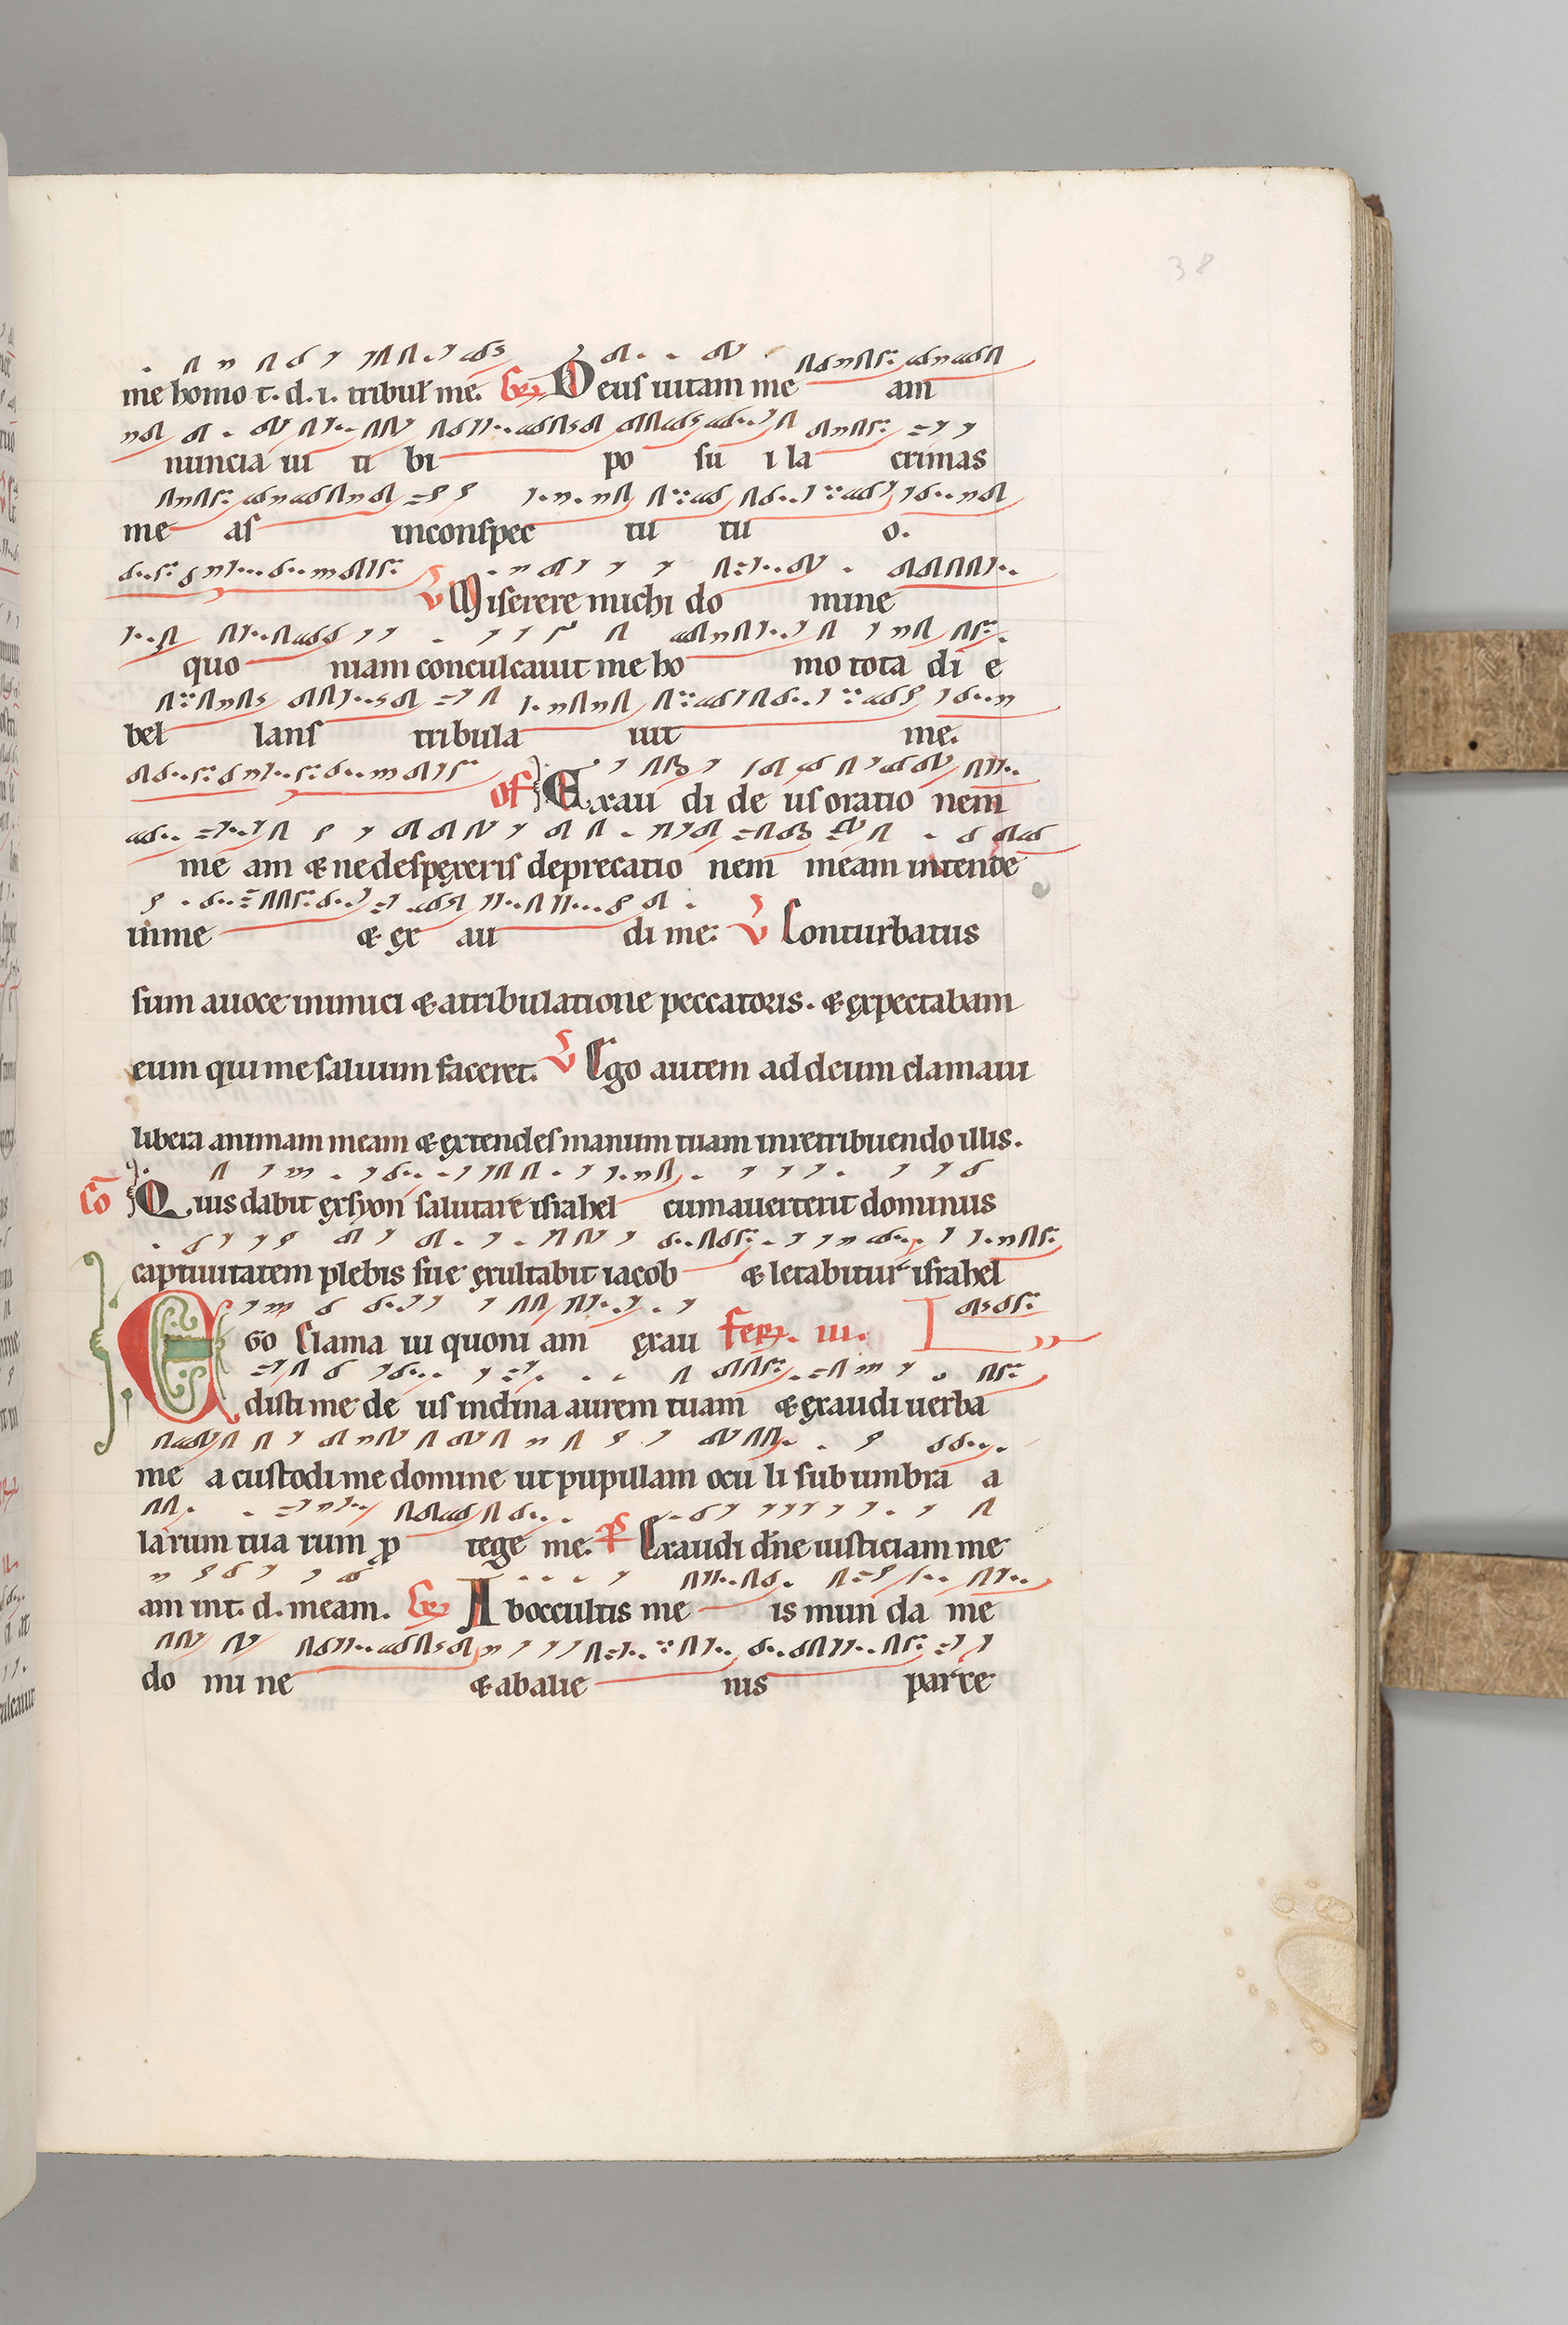 38
me homo t. d. i. tribul me. Gr Deus uitam me am
nuncia ui ti bi po su i la crimas
me as inconspec tu tu o.
V Miserere michi do mine
quo niam conculcauit me ho mo tota di e
bel lans tribula uit me.
of Exau di de us oratio nem
me am & ne despexeris deprecatio nem meam intende
in me & ex au di me: V Conturbatus
sum auoce inimici & atribulatione peccatoris. & expectabam
eum qui me saluum faceret. V Ego autem ad deum clamaui
libera animam meam & extendes manum tuam in retribuendo illis.
Co Quis dabit ex syon salutare israhel cum auerterit dominus
captiuitatem plebis sue exultabit iacob & letabitur israhel
EGo Clama ui quoni am exau fer. iii.
disti me de us inclina aurem tuam & exaudi uerba
me a custodi me domine ut pupulam ocu li sub umbra a
larum tua rum p tege me. Ps Exaudi dne iusticiam me
am int. d. meam. Gr Ab occultis me is mun da me
do mi ne & abalie nis parce